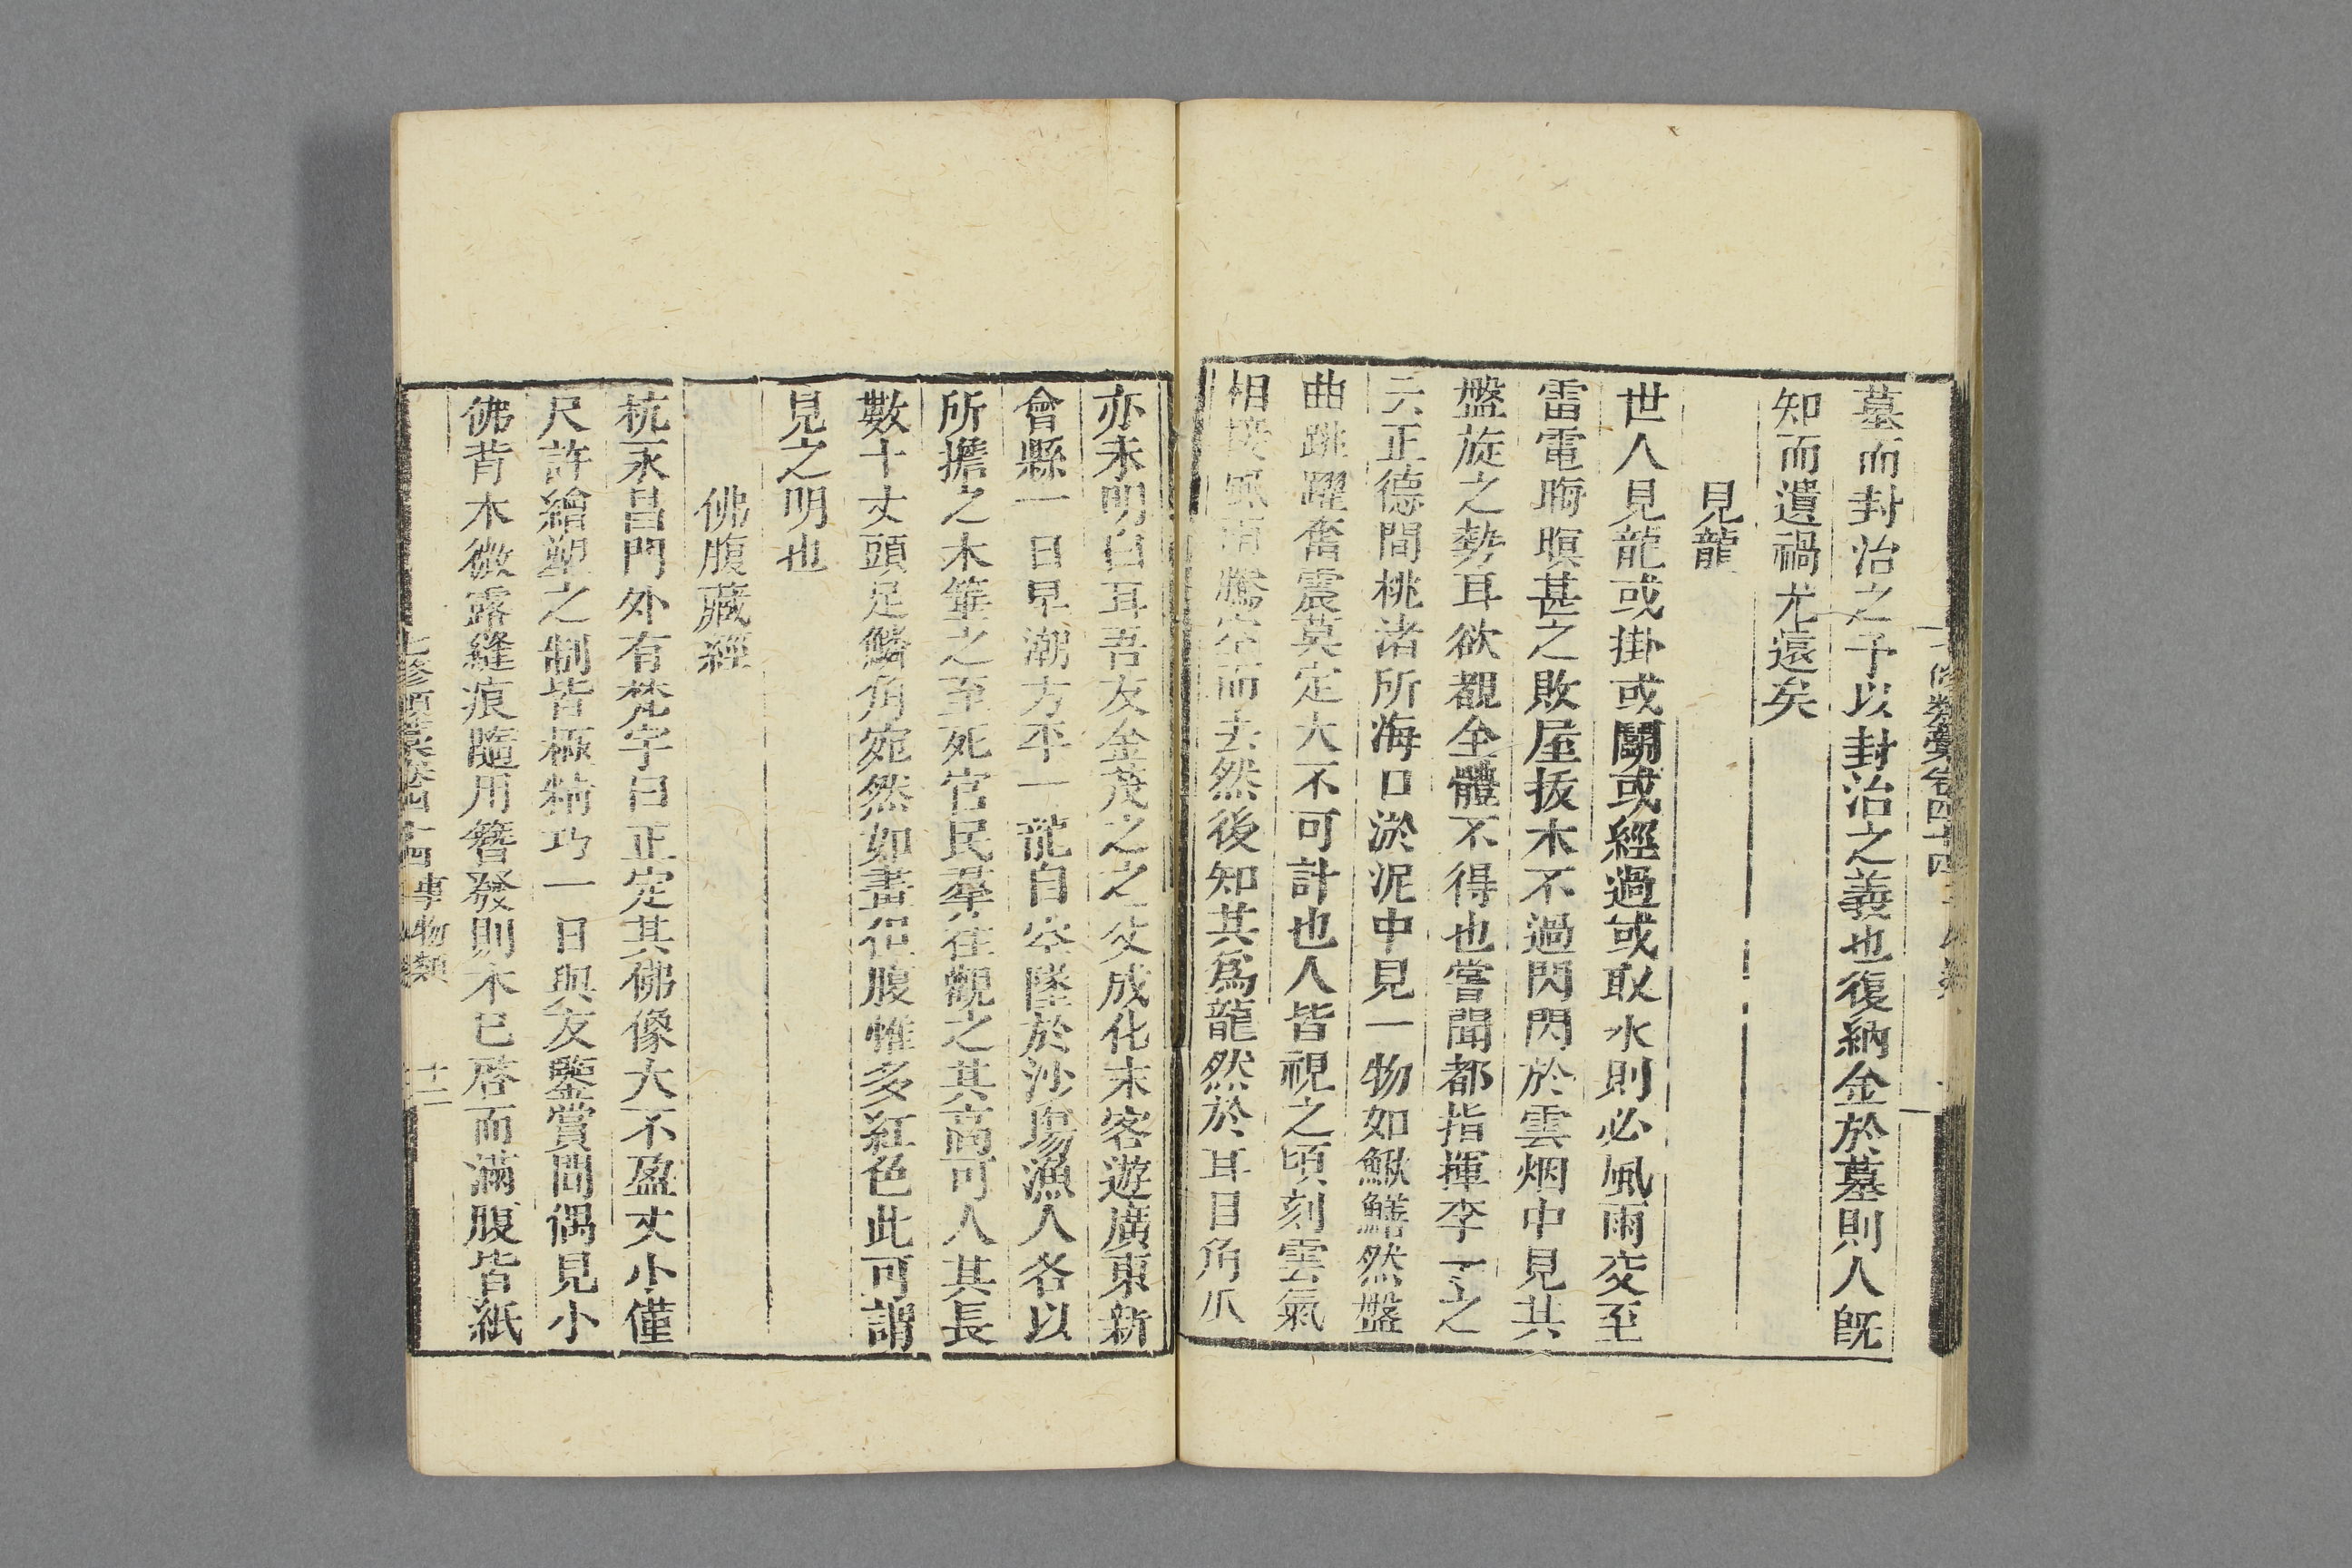 墓而封治之予以封治之義也復納金於墓則人旣
知而遺禍尤遠矣
見龍
世人見龍或掛或鬭或經過或取水則必風雨交至
雷電晦暝甚之敗屋拔木不過閃閃於雲烟中見其
盤旋之勢耳欲覩全體不得也嘗聞都指揮李一之
云正德間桃渚所海口淤泥中見一物如鰍鱔然盤
曲跳躍奮震莫定大不可計也人皆視之頃刻雲氣
相接風雨騰空而去然後知其爲龍然於耳目角爪
亦未明白耳吾友金茂之之父成化末客遊廣東新
會縣一日早潮方平一龍自空墜於沙塲漁人各以
所擔之木箠之至死官民羣往觀之其高可人其長
數十丈頭足鱗角宛然如畫但腹惟多紅色此可謂
見之明也
佛腹藏經
杭永昌門外有梵宇曰正定其佛像大不盈丈小僅
尺許繪塑之制皆極精巧一日與友鑒賞間偶見小
佛背木微露縫痕隨用簪發則木已啓而滿腹皆紙
七修類藁卷四十四 事物類 十二